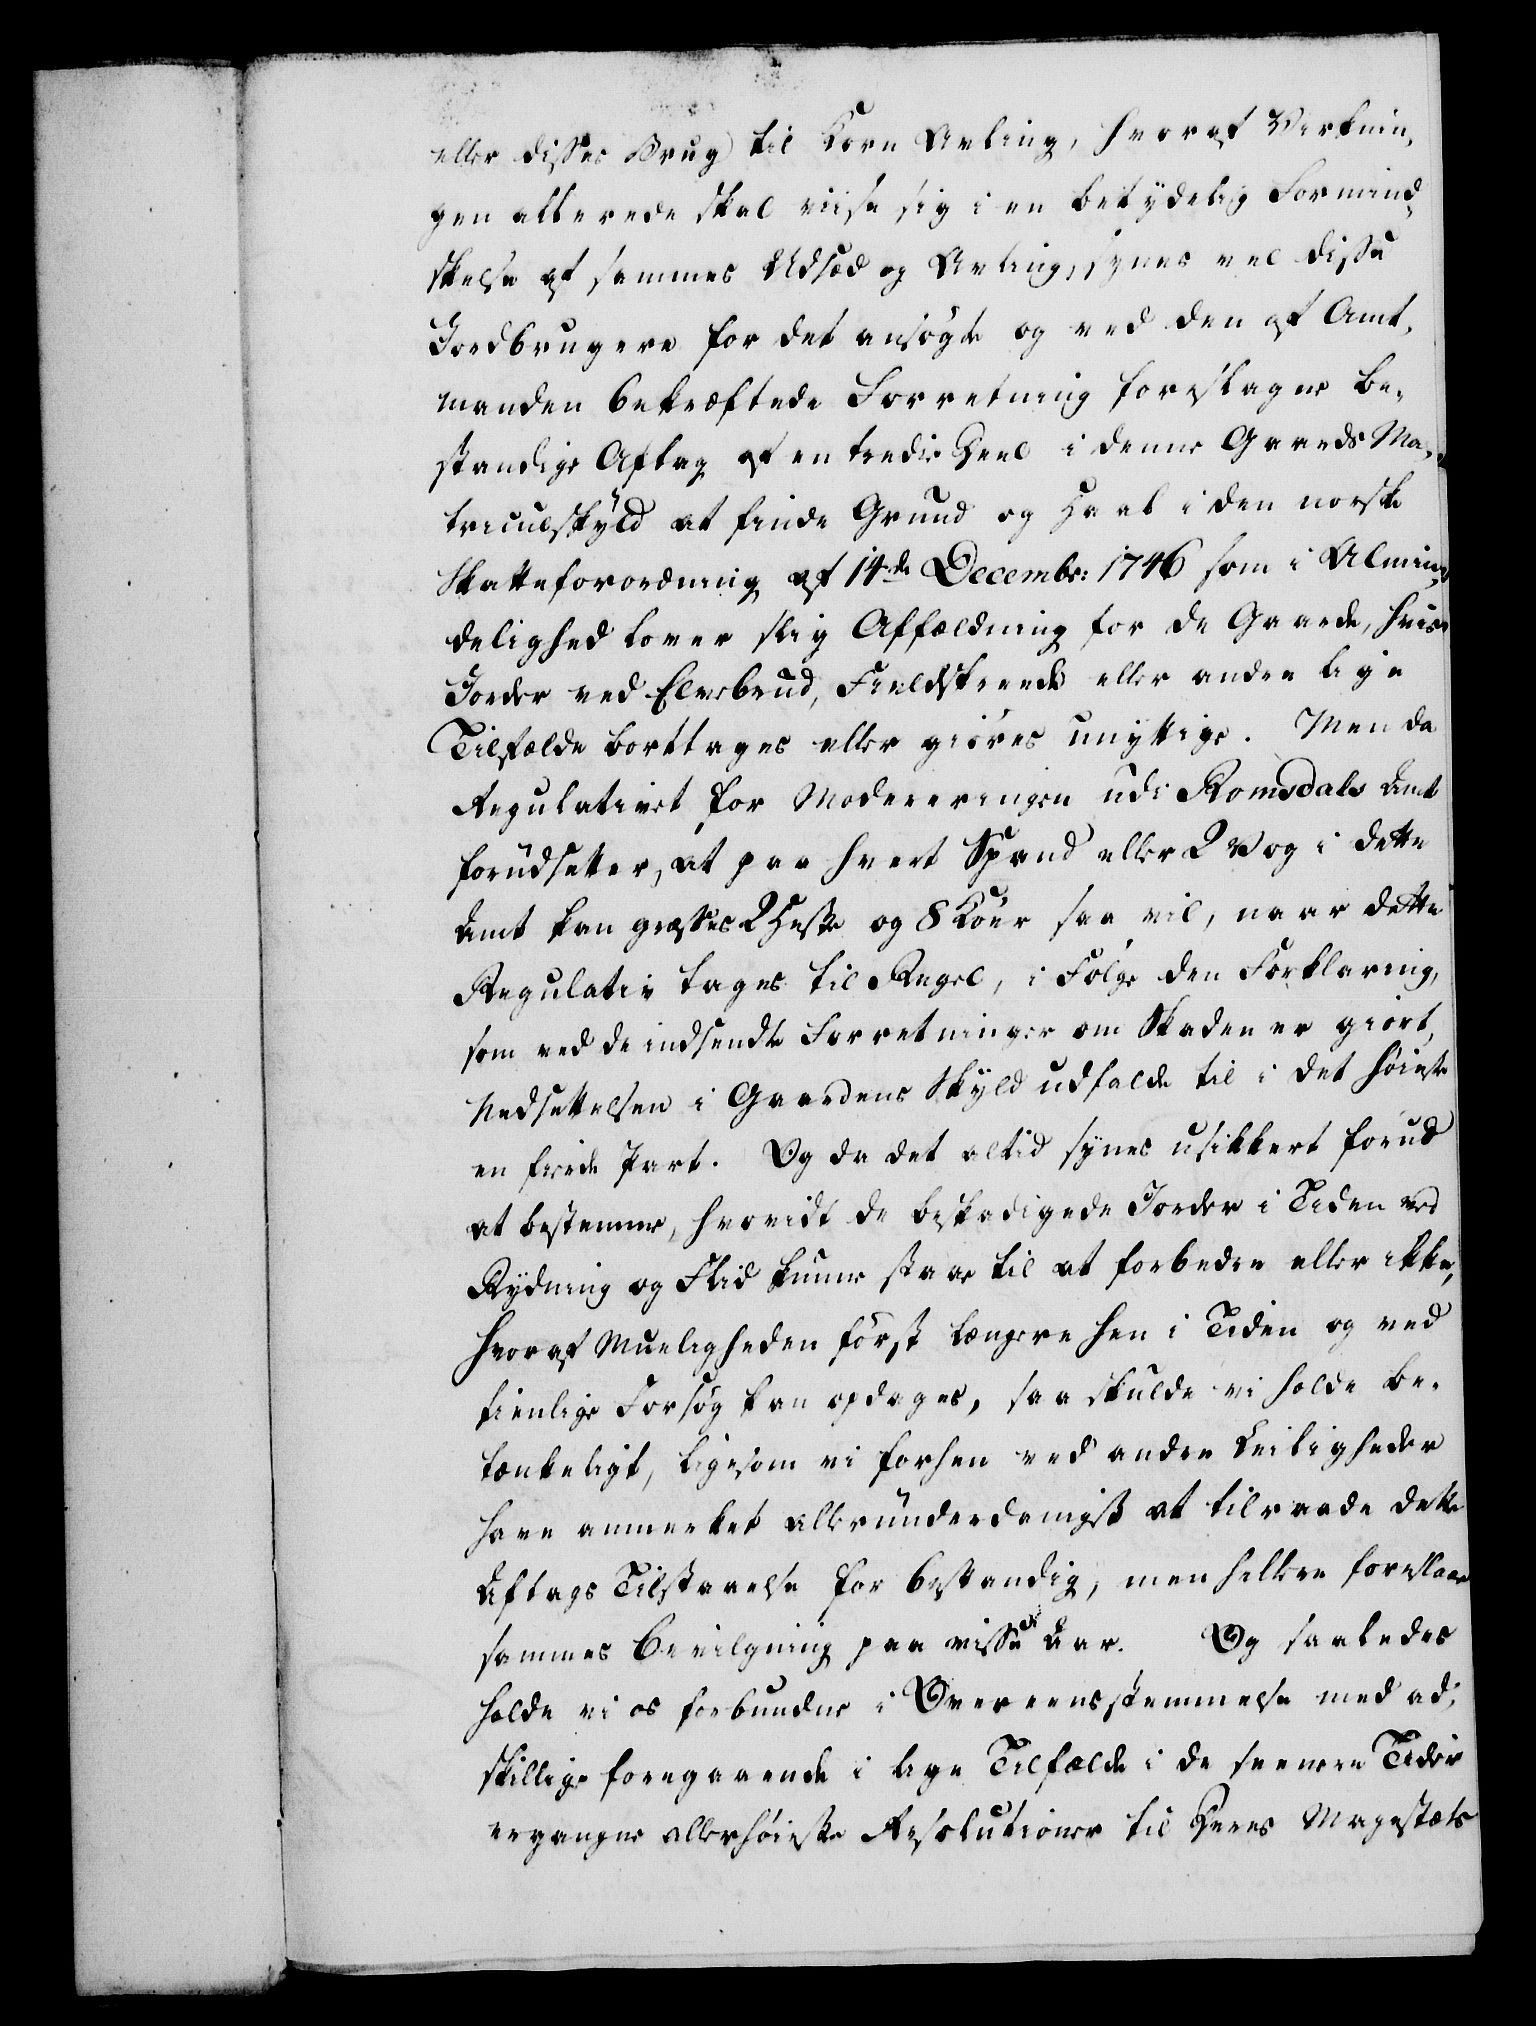 eller disses Brug til Korn Avling, hvoraf Virknin,
gen allerede skal viise sig i en betydelig Formind,
skelse af sammes Udsæd og Avling, synes vel disse
Jordbrugere for det ansøgte og ved den af Amt,
manden bekræftede Forretning foreslagne be,
standige Aftag af en tredie Deel i denne Gaards Ma,
triculskyld at finde Grund og Hæl i den norske
Skatteforordning af 14de Decembr: 1746 som i Almin,
delighed lover slig Affældning for de Gaarde, hvis
Jorder ved Elvebrud, Fieldskreede eller andre lige
Tilfælde borttages eller giøres unyttige. Men da
Regulativet for Modereringen udi Romsdals Amt
forudsetter, at paa hvert Spand eller 2 Vog i dette
Amt kan græsses 2 Heste og 8 Køer saa vil, naar dette
Regulativ tages til Regel, i Følge den Forklaring,
som ved de indsendte Forretninger om Skaden er giort,
Nedsettelsen i Gaardens Skyld udfalde til i det høieste
en fierde Part. Og da det altid synes usikkert forud
at bestemme, hvorvidt de beskadigede Jorder i Tiden ved
Rydning og Flid kunne staae til at forbedre eller ikke,
hvoraf Mueligheden først længere hen i Tiden og ved
tienlige Forsøg kan opdages, saa skulde vi holde be,
tænkeligt, ligesom vi forhen ved andre Leiligheder
have anmerket allerunderdanigst at tilraade dette
Aftags Tilstaaelse for bestandig, men hellere foreslaae
sammes Bevilgning paa visse Aar. Og saaledes
holde vi os forbundne i Overeensstemmelse med ad,
skillige foregaaende i lige Tilfælde i de seenere Tider
ergangne allerhøieste Resolutioner til Deres Majestæts